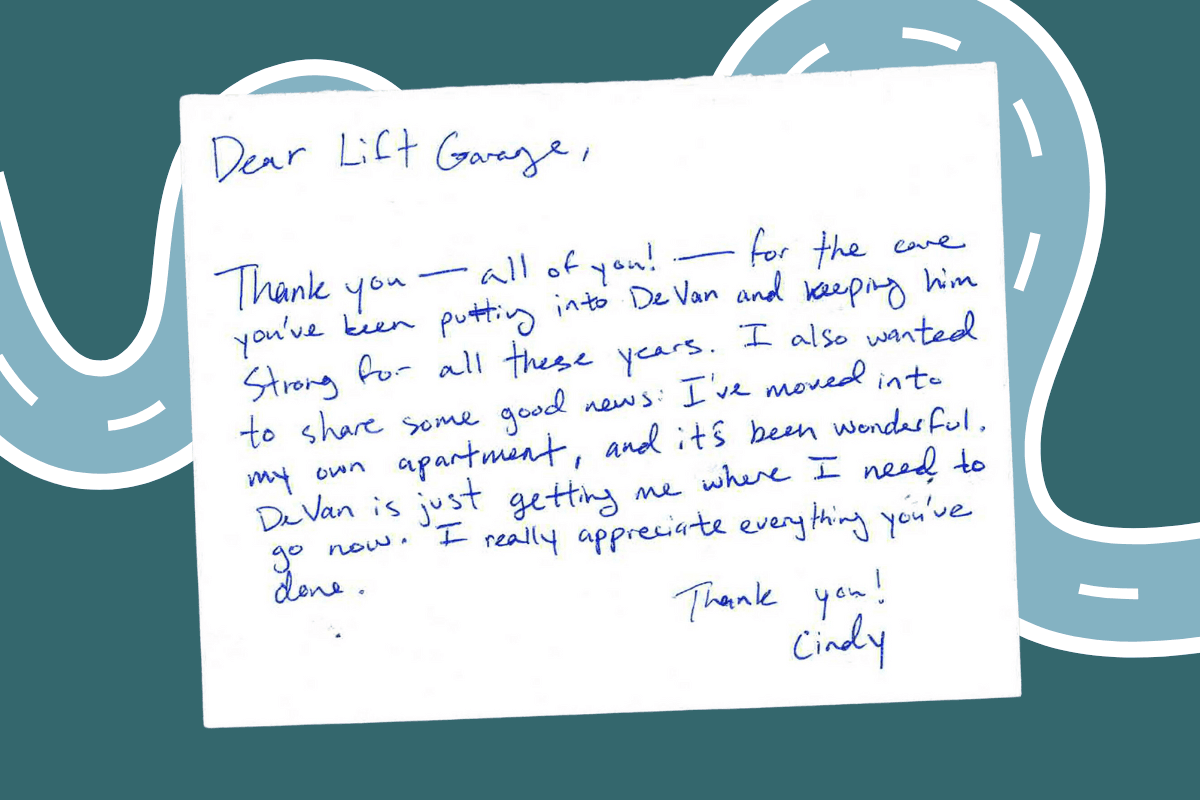 Dear Lift Garage,
Thank you — all of you! — for the care
you've been putting into DeVan and keeping him
strong for all these years. I also wanted
to share some good news: I've moved into
my own apartment, and it's been wonderful.
DeVan is just getting me where I need to
go now. I really appreciate everything you've
done.
Thank you!
Cindy